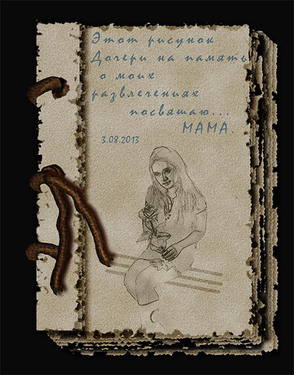 Этот рисунок
Дочери на память
о моих
развлечениях
посвящаю...
МАМА.
3.08.2013